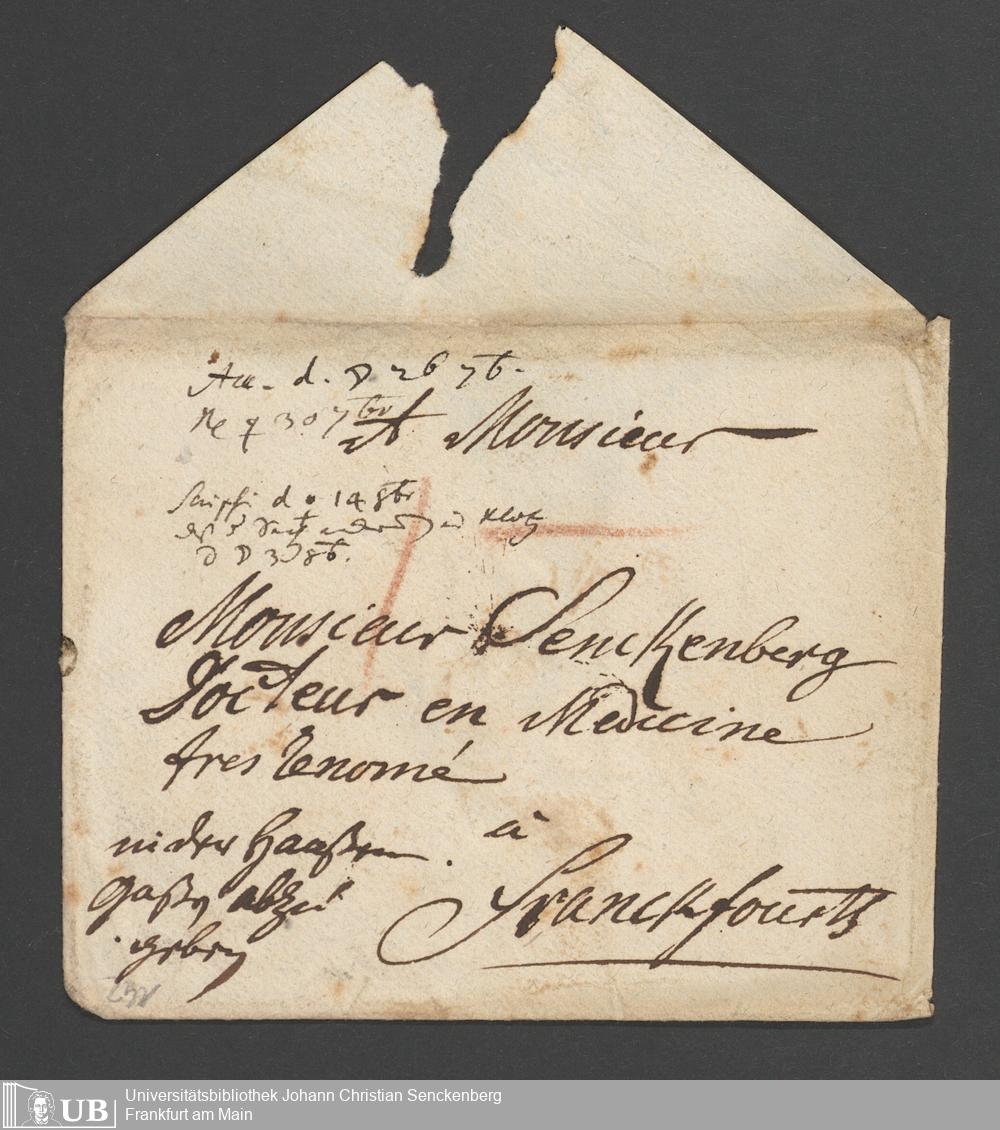 d. 26 7b.
30 7br
A Monsieur
Scripsi d. 14 8br
Klotz
3 8b.
Monsieur Senckenberg
Docteur en Medicine
tres renomé
in der Haaßen
Gaßen abzu
geben
à
Franckfourth
Universitätsbibliothek Johann Christian Senckenberg
Frankfurt am Main
UB